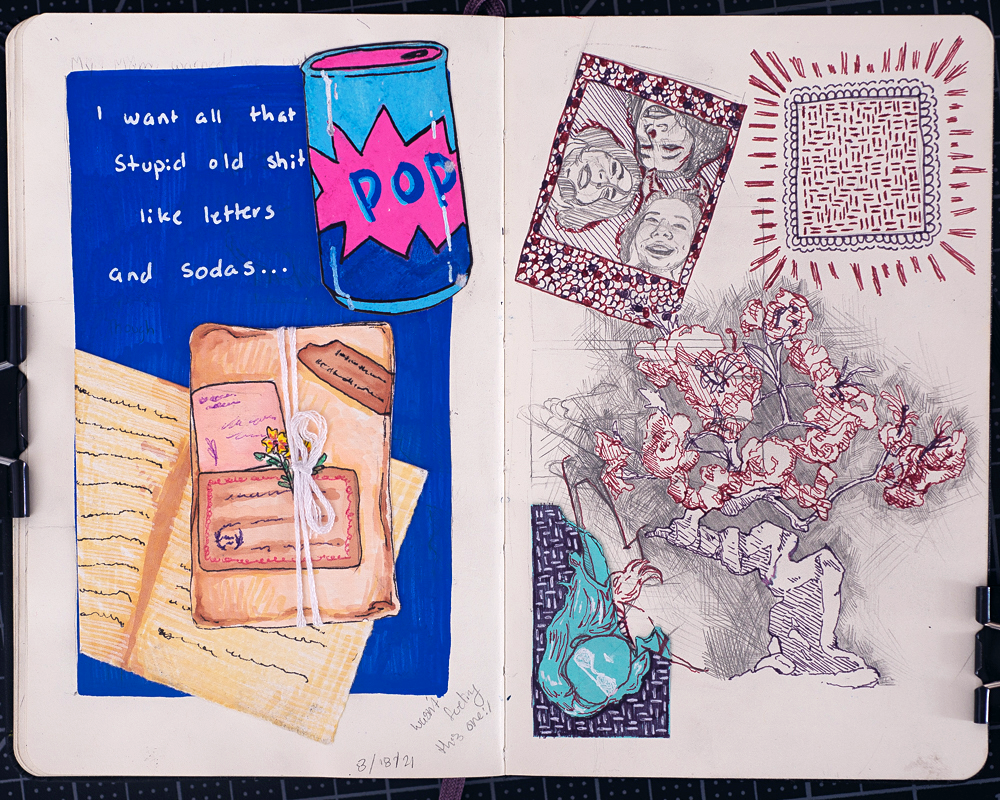 I want all that
Stupid old shit
like letters
and sodas...
POP
wasn't feeling
this one!!
8/18/21